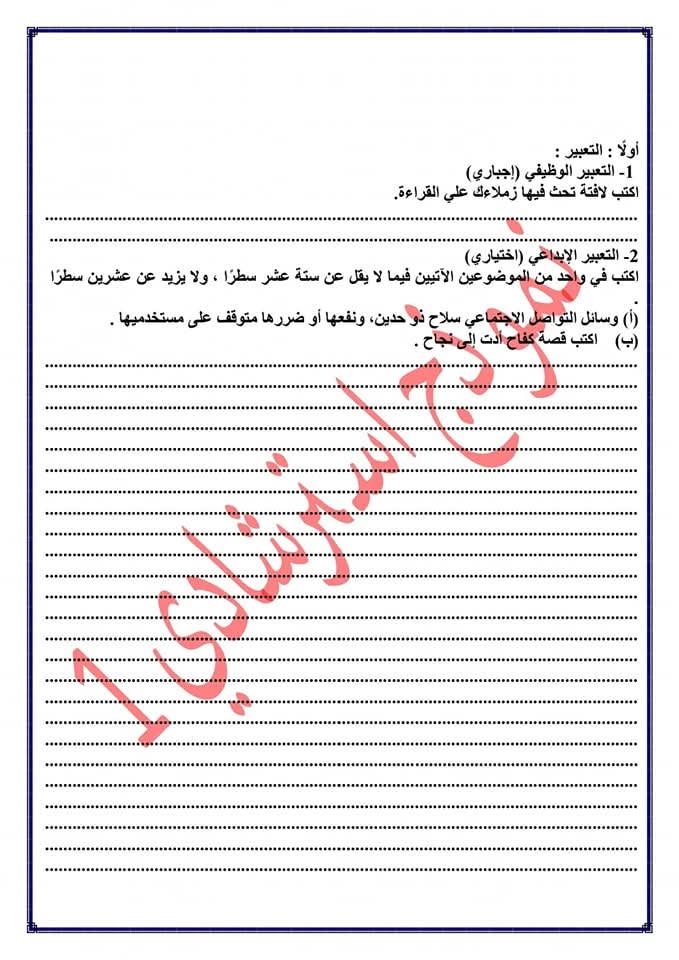 أولًا : التعبير :
1- التعبير الوظيفي (إجباري)
اكتب لافتة تحث فيها زملاءك علي القراءة.
2- التعبير الإبداعي (اختياري)
اكتب في واحد من الموضوعين الآتيين فيما لا يقل عن ستة عشر سطرًا ، ولا يزيد عن عشرين سطرًا
.
(أ) وسائل التواصل الاجتماعي سلاح ذو حدين، ونفعها أو ضررها متوقف على مستخدميها .
(ب) اكتب قصة كفاح أدت إلى نجاح .
نموذج استرشادي 1